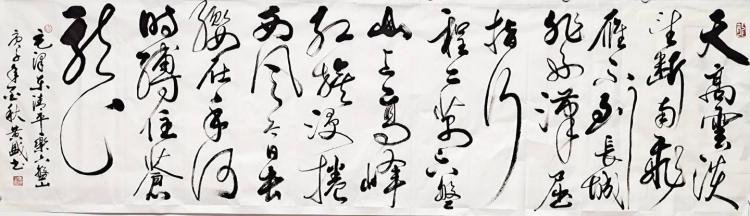 天高雲淡
望斷南飛
雁不到長城
非好漢屈
指行
程二萬六盤
山上高峰
紅旗漫捲
西風今日長
纓在手何
時縛住蒼
龍
毛澤東清平樂六盤山
庚子年金秋